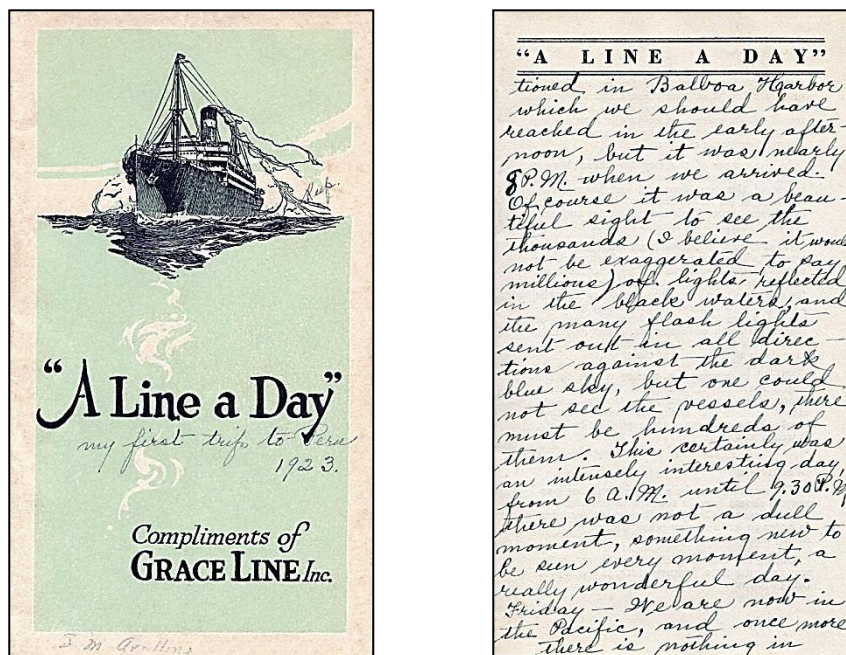 "A Line a Day"
my first trip to Peru
1923.
Compliments of
GRACE LINE Inc.
"A LINE A DAY"
tioned in Balboa Harbor
which we should have
reached in the early after-
noon, but it was nearly
8 P.M. when we arrived.
Of course it was a beau-
tiful sight to see the
thousands (I believe it would
not be exaggerated to say
millions) of lights reflected
in the black waters, and
the many flash lights
sent out in all direc-
tions against the dark
blue sky, but one could
not see the vessels, there
must be hundreds of
them. This certainly was
an intensely interesting day,
from 6 A.M. until 9.30 P.M.
there was not a dull
moment, something new to
be seen every moment, a
really wonderful day.
Friday — We are now in
the Pacific, and once more
there is nothing in